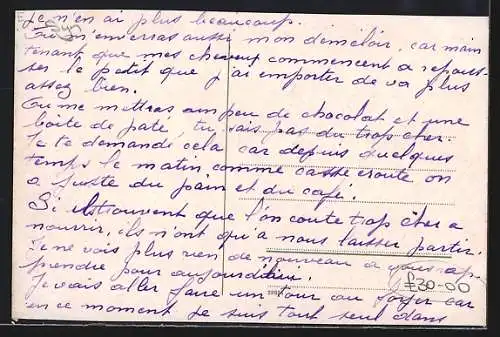 Je n'en ai plus beaucoup.
Tu m'enverras aussi mon démêloir, car main
tenant que mes cheveux commencent a repous-
ser le petit que j'ai emporter de va plus
assez bien.
Tu me mettras un peu de chocolat et une
boîte de paté, tu sais pas du trop cher.
Je te demande cela car depuis quelques
temps le matin comme casse croute on
a juste du pain et du café.
Si ils trouvent que l'on coute trop cher a
nourrir, ils n'ont qu'a nous laisser partir.
Je ne vois plus rien de nouveau a vous ap-
prendre pour aujourd'hui.
Je vais aller faire un tour au foyer car
en ce moment je suis tout seul dans
£30-00